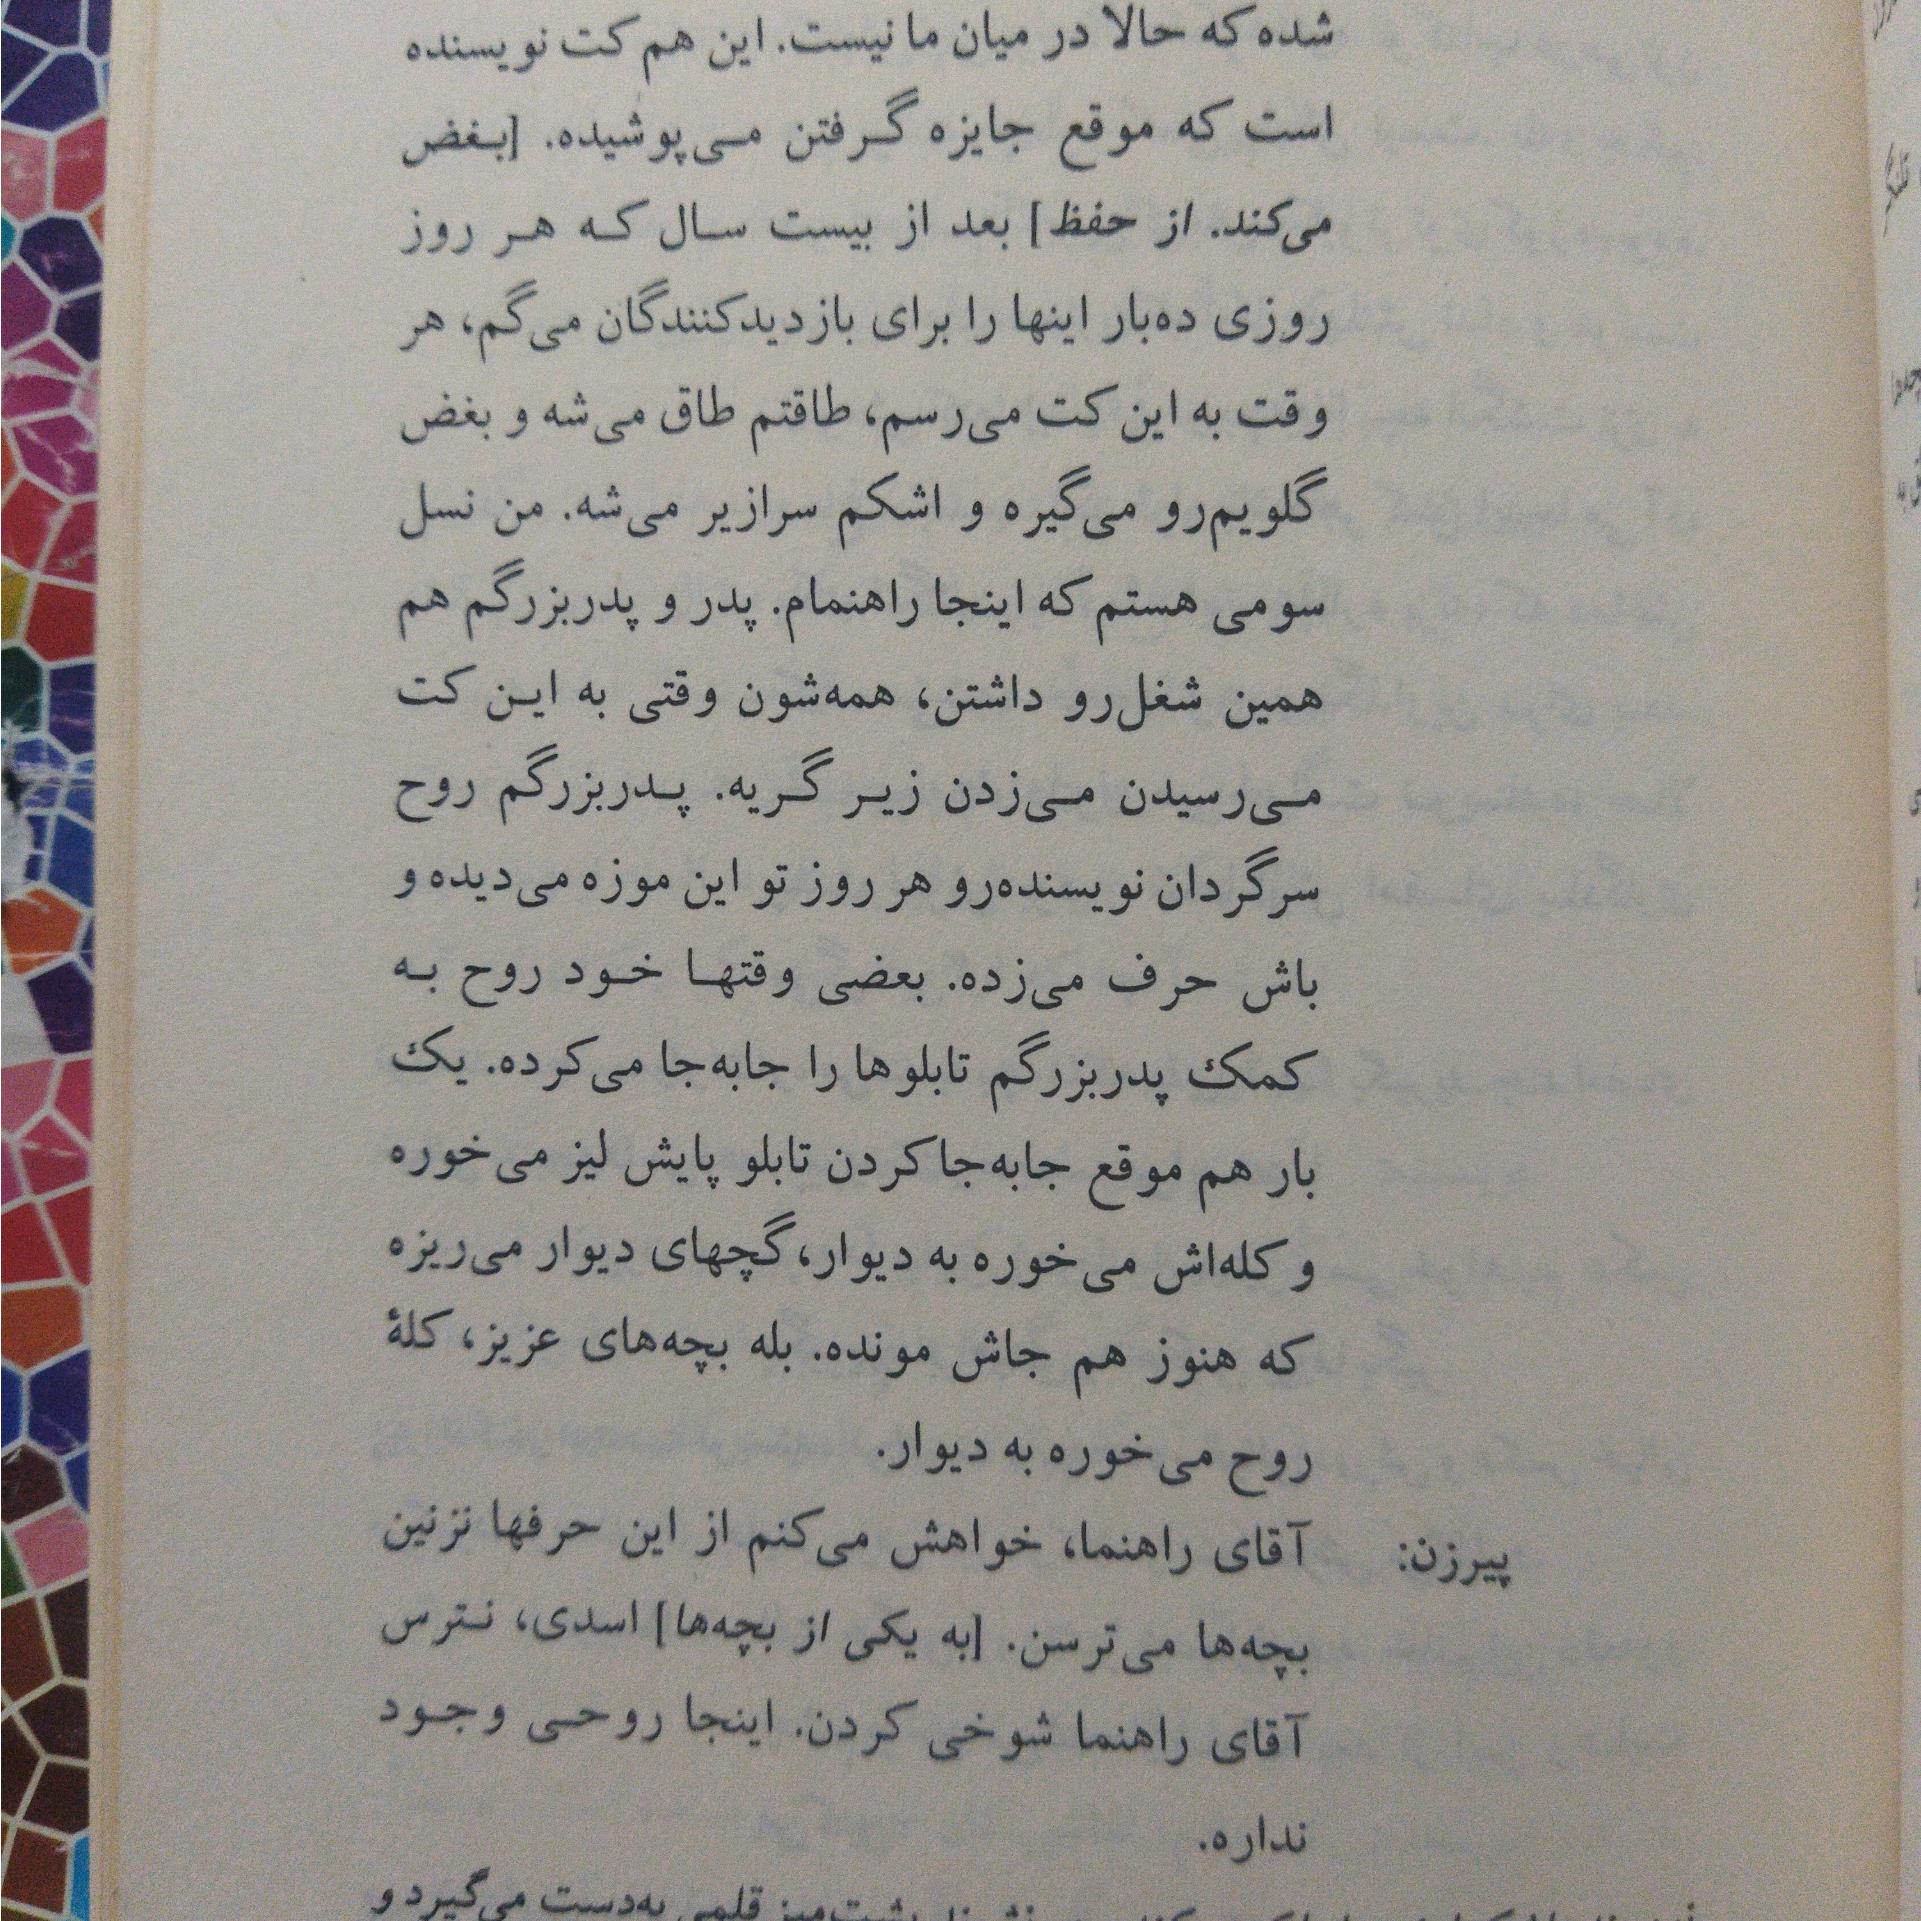 شده که حالا در میان ما نیست. این هم کت نویسنده
است که موقع جایزه گرفتن می‌پوشیده. [بغض
می‌کند. از حفظ] بعد از بیست سال که هر روز
روزی ده‌بار اینها را برای بازدیدکنندگان می‌گم، هر
وقت به این کت می‌رسم، طاقتم طاق می‌شه و بغض
گلویم‌رو می‌گیره و اشکم سرازیر می‌شه. من نسل
سومی هستم که اینجا راهنمام. پدر و پدربزرگم هم
همین شغل‌رو داشتن، همه‌شون وقتی به این کت
می‌رسیدن می‌زدن زیر گریه. پدربزرگم روح
سرگردان نویسنده‌رو هر روز تو این موزه می‌دیده و
باش حرف می‌زده. بعضی وقتها خود روح به
کمک پدربزرگم تابلوها را جابه‌جا می‌کرده. یک
بار هم موقع جابه‌جا کردن تابلو پایش لیز می‌خوره
و کله‌اش می‌خوره به دیوار، گچهای دیوار می‌ریزه
که هنوز هم جاش مونده. بله بچه‌های عزیز، کلهٔ
روح می‌خوره به دیوار.
پیرزن: آقای راهنما، خواهش می‌کنم از این حرفها نزنین
بچه‌ها می‌ترسن. [به یکی از بچه‌ها] اسدی، نترس
آقای راهنما شوخی کردن. اینجا روحی وجود
نداره.
پشت میز قلمی به‌دست می‌گیرد و